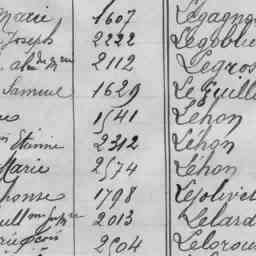 Marie 1607 Legagne
Joseph 2222
2112 Legros
Samuel 1629 Le Guille
1541 Lehon
Etienne 2312 Lehon
Marie 2574 Léhon
phonse 1798 Lejolivet
2013 Lelard
2504 Lelorou